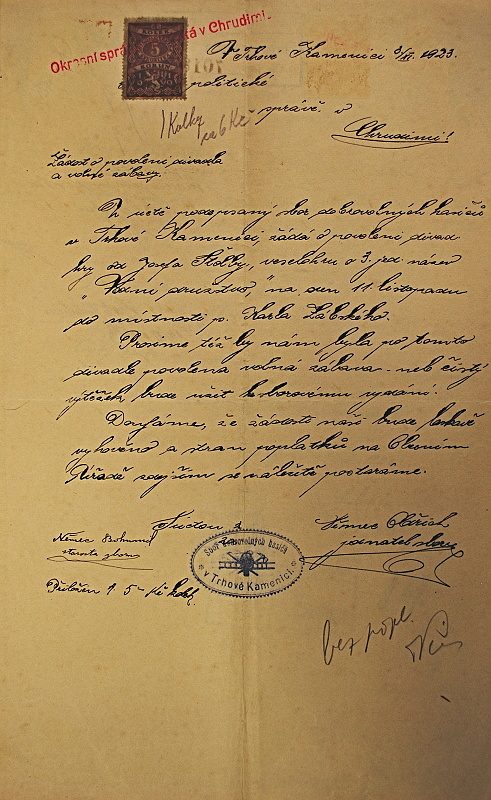 Okresní sprá á v Chrudimi.
KOLEK
5
V Trhové Kamenici 3/XI. 1923.
politické
správě v
Chrudimi!
1 Kolky
Žádost o povolení divadla
a volné zábavy.
níže podepsaný sbor dobrovolných hasičů
v Trhové Kamenici, žádá o povolení divad.
hry od Josefa Štolby, veselohru o 3. jed. název
"Vodní družstvo," na den 11. listopadu
do místnosti p. Karla Zábského.
Prosíme též by nám byla po tomto
divadle povolena volná zábava - neb čistý
výtěžek bude užit k sborovému vydání.
Doufáme, že žádosti naší bude laskavě
vyhověno a stran poplatků na Obecním
Úřadě zdejším se náležitě postaráme.
Němec Oldřich
jednatel sboru
Němec Bohumil
starosta sboru
Sbor dobrovolných hasičů
v Trhové Kamenici.
Přiložen 1. 5 - Kč kolek.
bez popl.